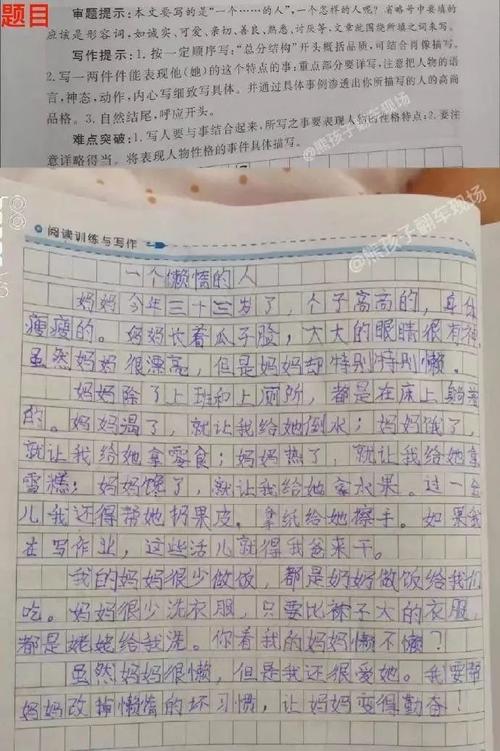 题目
审题提示：本文要写的是“一个……的人”，一个怎样的人呢？省略号中要填的
应该是形容词，如诚实、可爱、亲切、善良、熟悉、讨厌等，文章就围绕所填之词来写。
写作提示：1. 按一定顺序写：“总分结构”开头概括品质，可结合肖像描写。
2. 写一两件件能表现他（她）的这个特点的事；重点部分要详写，注意把人物的语
言，神态，动作，内心写细致写具体。并通过具体事例渗透出你所描写的人的高尚
品格。3. 自然结尾，呼应开头。
难点突破：1. 写人要与事结合起来，所写之事要表现人物的性格特点；2. 要注
意详略得当。将表现人物性格的事件具体描写。
@熊孩子翻车现场
阅读训练与写作
@熊孩子翻车现场
一个懒惰的人
妈妈今年三十三岁了，个子高高的，身体
瘦瘦的。妈妈长着瓜子脸，大大的眼睛很有神，
虽然妈妈很漂亮，但是妈妈却特别特别懒。
妈妈除了上班和上厕所，都是在床上躺着
的。妈妈渴了，就让我给她倒水；妈妈饿了，
就让我给她拿零食；妈妈热了，就让我给她拿
雪糕；妈妈馋了，就让我给她拿水果。过一会
儿我还得帮她扔果皮，拿纸给她擦手。如果我
在写作业，这些活儿就得我爸来干。
我的妈妈很少做饭，都是奶奶做饭给我们
吃。妈妈很少洗衣服，只要比袜子大的衣服，
都是姥姥给我洗。你看我的妈妈懒不懒？
虽然妈妈很懒，但是我还很爱她。我要帮
妈妈改掉懒惰的坏习惯，让妈妈变得勤奋！